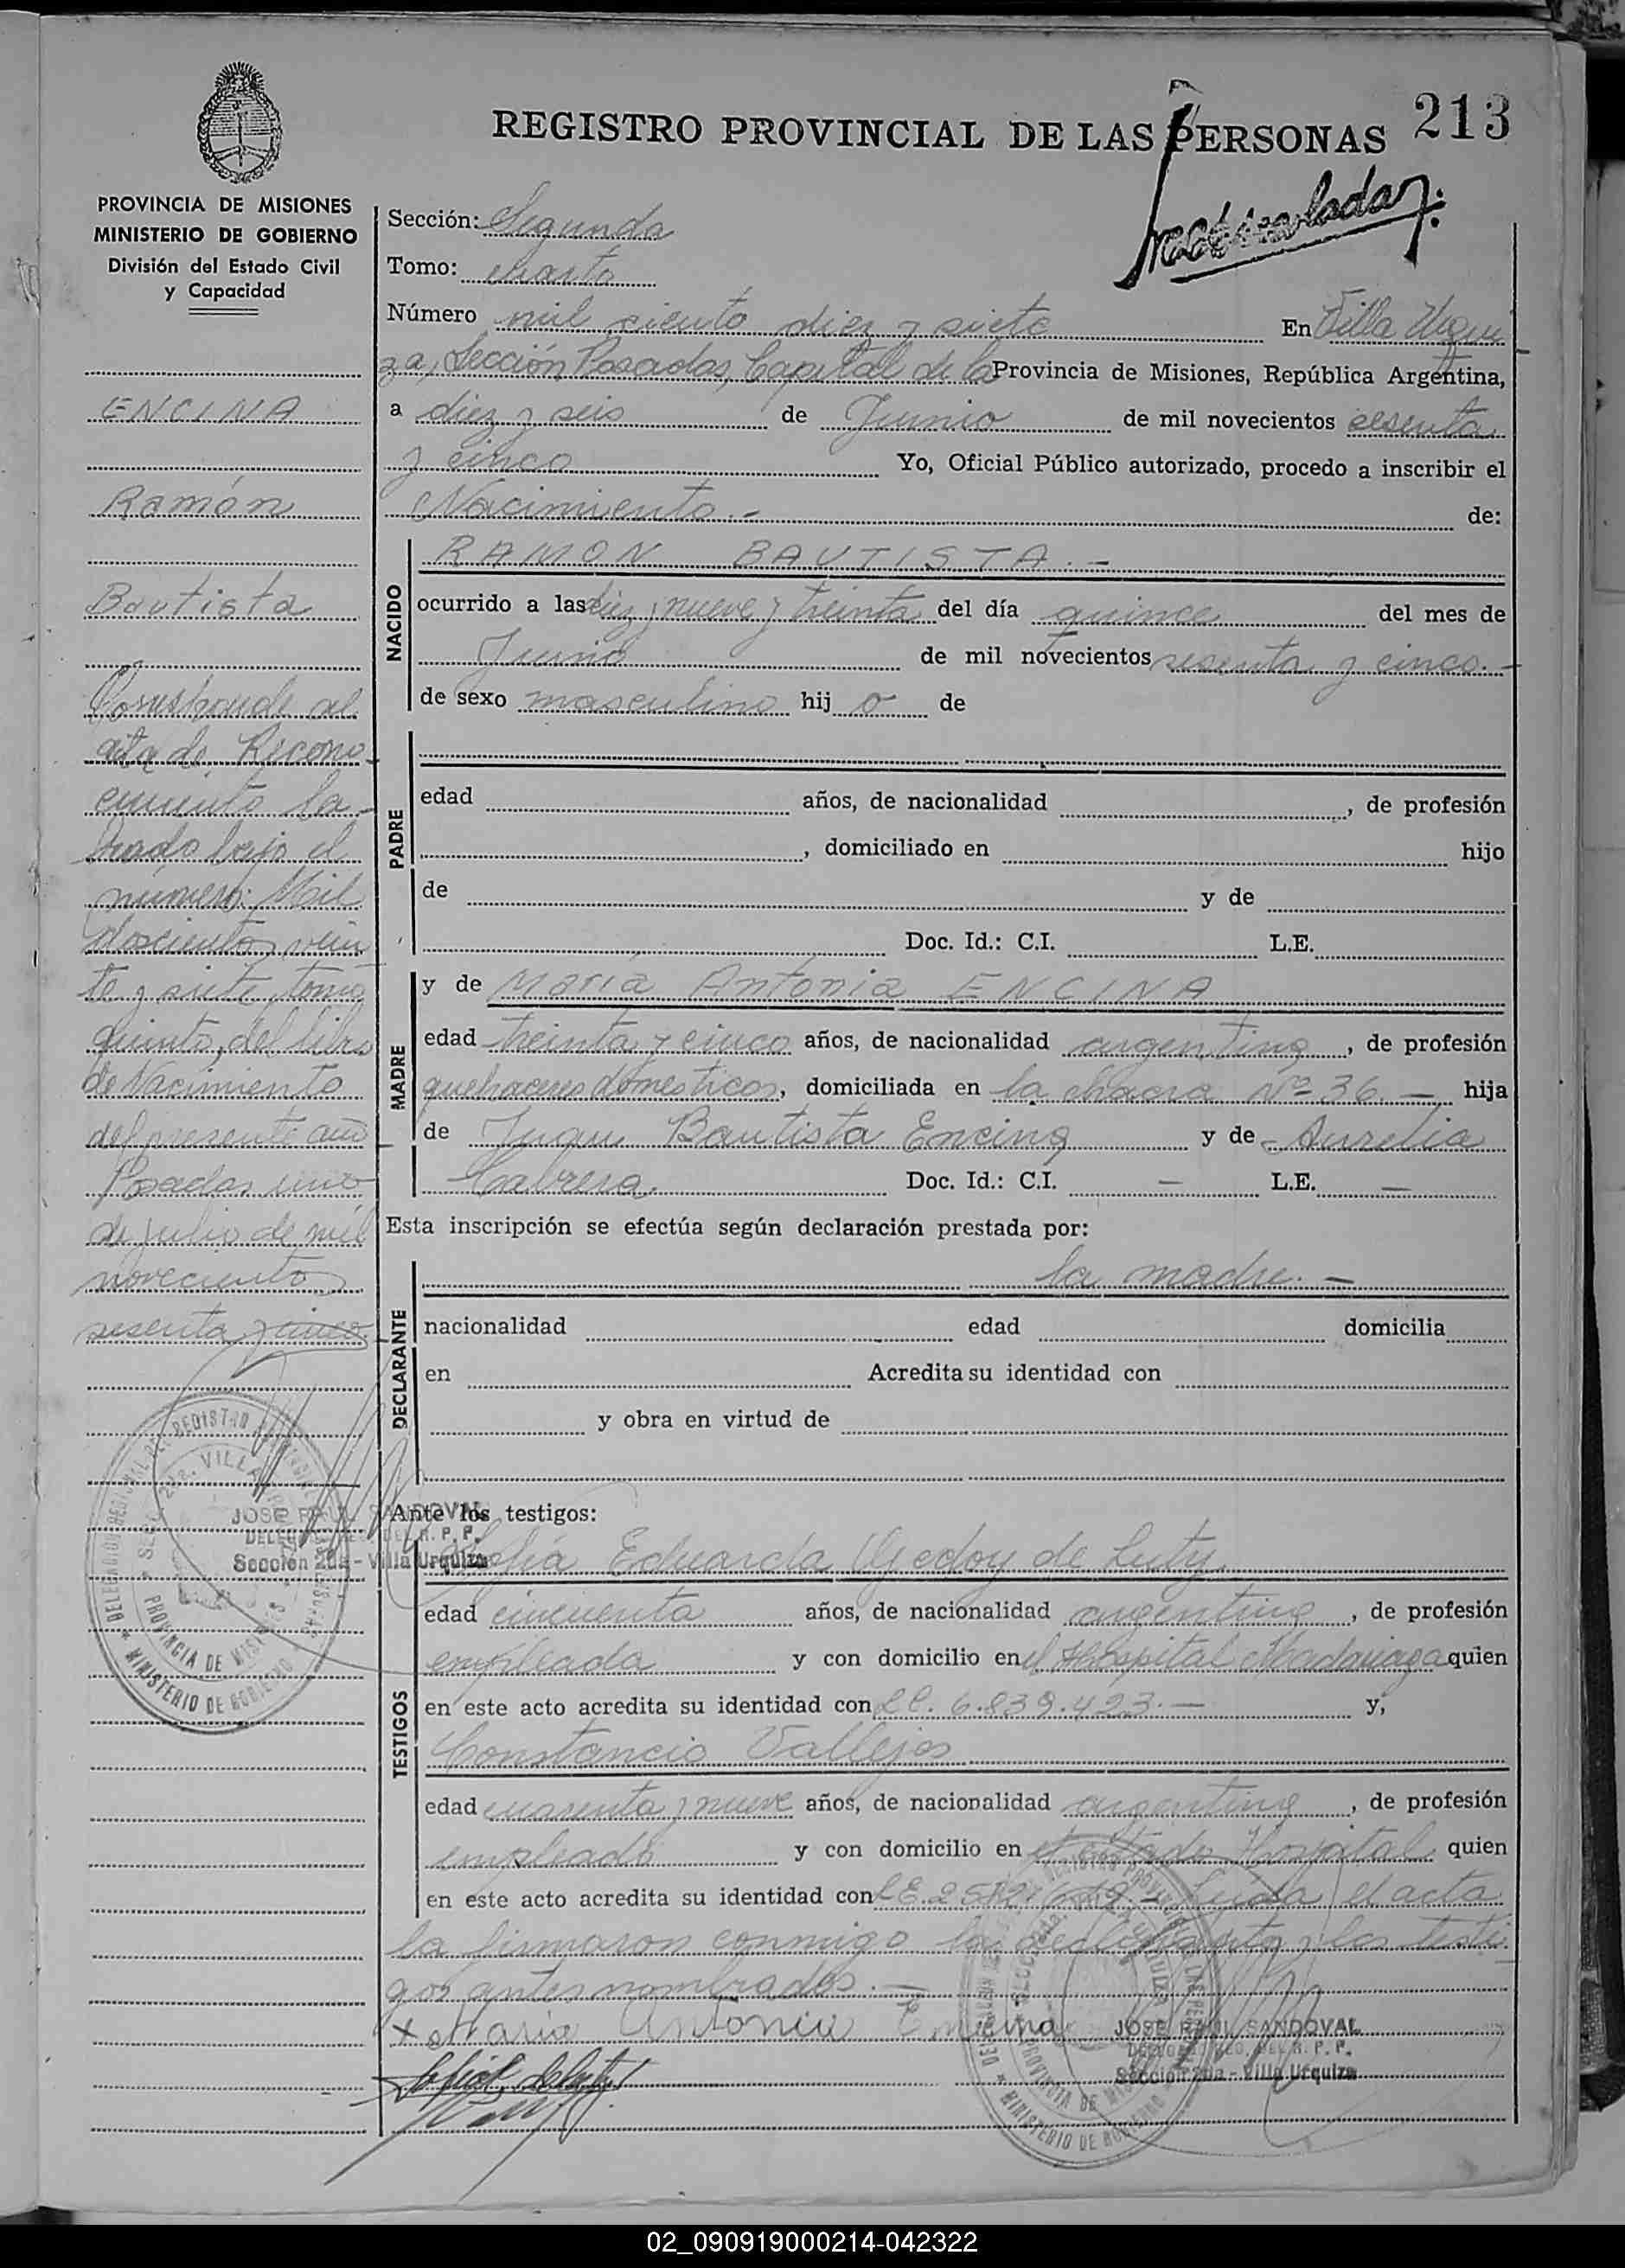 213
REGISTRO PROVINCIAL DE LAS PERSONAS
PROVINCIA DE MISIONES
MINISTERIO DE GOBIERNO
División del Estado Civil
y Capacidad
ENCINA
Ramón
Bautista
Corresponde al
acta de Recono
cimiento la-
brado bajo el
número: Mil
doscientos vein
te y siete, tomo
quinto, del libro
de Nacimiento
del presente año
Posadas, uno
de julio de mil
novecientos
sesenta y cinco
JOSE RAUL SANDOVAL
DELEGADO REG. DEL R. P. P.
Sección 2da - Villa Urquiza
Sección: Segunda
Tomo: cuarto
Número mil ciento diez y siete En Villa Urqui
za, Sección Posadas, Capital de la Provincia de Misiones, República Argentina,
a diez y seis de Junio de mil novecientos sesenta
y cinco Yo, Oficial Público autorizado, procedo a inscribir el
Nacimiento.- de:
NACIDO
RAMON BAUTISTA.-
ocurrido a las diez y nueve y treinta del día quince del mes de
Junio de mil novecientos sesenta y cinco.-
de sexo masculino hij o de
PADRE
edad años, de nacionalidad , de profesión
, domiciliado en hijo
de y de
Doc. Id.: C.I. L.E.
MADRE
y de María Antonia ENCINA
edad treinta y cinco años, de nacionalidad argentina, de profesión
quehaceres domesticos, domiciliada en la chacra Nº 36.- hija
de Juan Bautista Encina y de Aurelia
Cabrera. Doc. Id.: C.I. - L.E. -
Esta inscripción se efectúa según declaración prestada por:
DECLARANTE
la madre.-
nacionalidad edad domicilia
en Acredita su identidad con
y obra en virtud de
Ante los testigos:
TESTIGOS
Sofía Eduarda Godoy de Luty.
edad cincuenta años, de nacionalidad argentina, de profesión
empleada y con domicilio en el Hospital Madariaga quien
en este acto acredita su identidad con LC. 6.839.423.- y,
Constancio Vallejos
edad cuarenta y nueve años, de nacionalidad argentina, de profesión
empleado y con domicilio en el Hospital quien
en este acto acredita su identidad con LE. Leida el acta
la firmaron conmigo la declarante y los testi
gos antes nombrados.-
x Maria Antonia Encina
JOSE RAUL SANDOVAL
DELEGADO REG. DEL R. P. P.
Sección 2da - Villa Urquiza
02_090919000214-042322